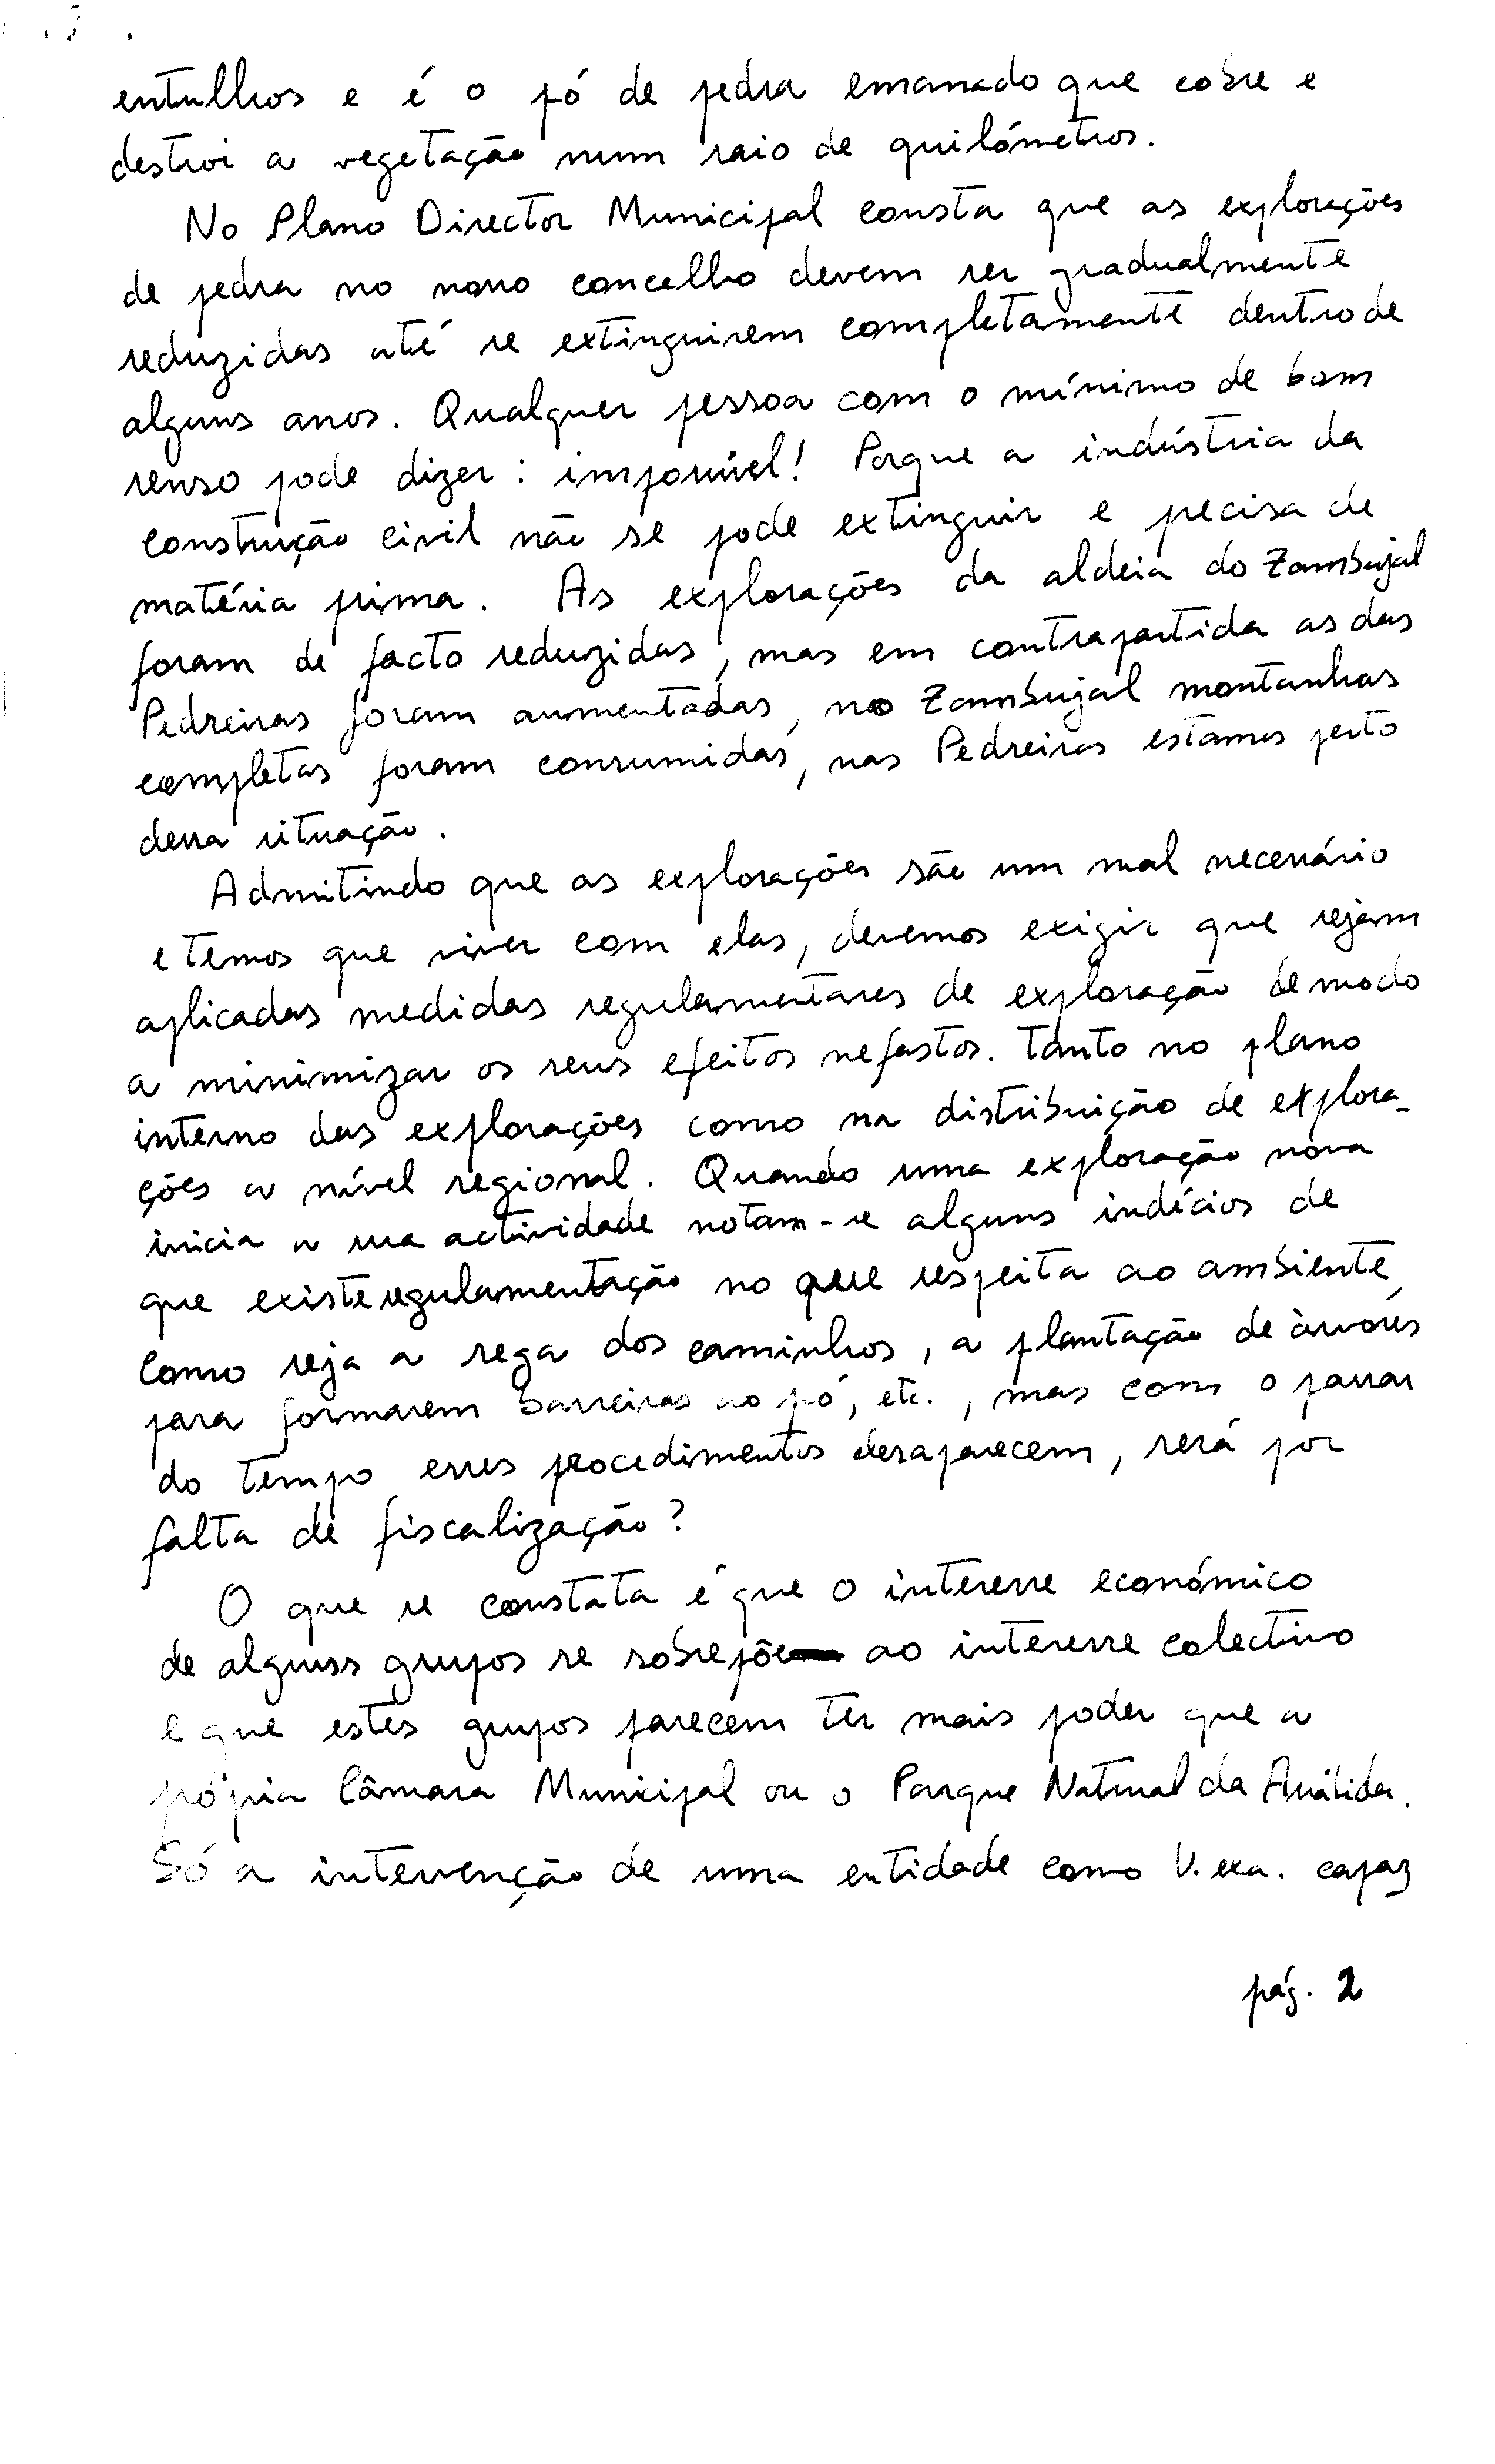 entulhos e é o pó de pedra emanado que cobre e
destroi a vegetação num raio de quilómetros.
No Plano Director Municipal consta que as explorações
de pedra no nosso concelho devem ser gradualmente
reduzidas até se extinguirem completamente dentro de
alguns anos. Qualquer pessoa com o mínimo de bom
senso pode dizer: impossível! Porque a indústria da
construção civil não se pode extinguir e precisa de
matéria prima. As explorações da aldeia do Zambujal
foram de facto reduzidas, mas em contrapartida as das
Pedreiras foram aumentadas, no Zambujal montanhas
completas foram consumidas, nas Pedreiras estamos perto
dessa situação.
Admitindo que as explorações são um mal necessário
e temos que viver com elas, devemos exigir que sejam
aplicadas medidas regulamentares de exploração de modo
a minimizar os seus efeitos nefastos. Tanto no plano
interno das explorações como na distribuição de explora-
ções a nível regional. Quando uma exploração nova
inicia a sua actividade notam-se alguns indícios de
que existe regulamentação no que respeita ao ambiente,
como seja a rega dos caminhos, a plantação de àrvores
para formarem barreiras ao pó, etc., mas com o passar
do tempo esses procedimentos desaparecem, será por
falta de fiscalização?
O que se constata é que o interesse económico
de alguns grupos se sobrepõe ao interesse colectivo
e que estes grupos parecem ter mais poder que a
própria Câmara Municipal ou o Parque Natural da Arrábida.
Só a intervenção de uma entidade como V. exa. capaz
pág. 2